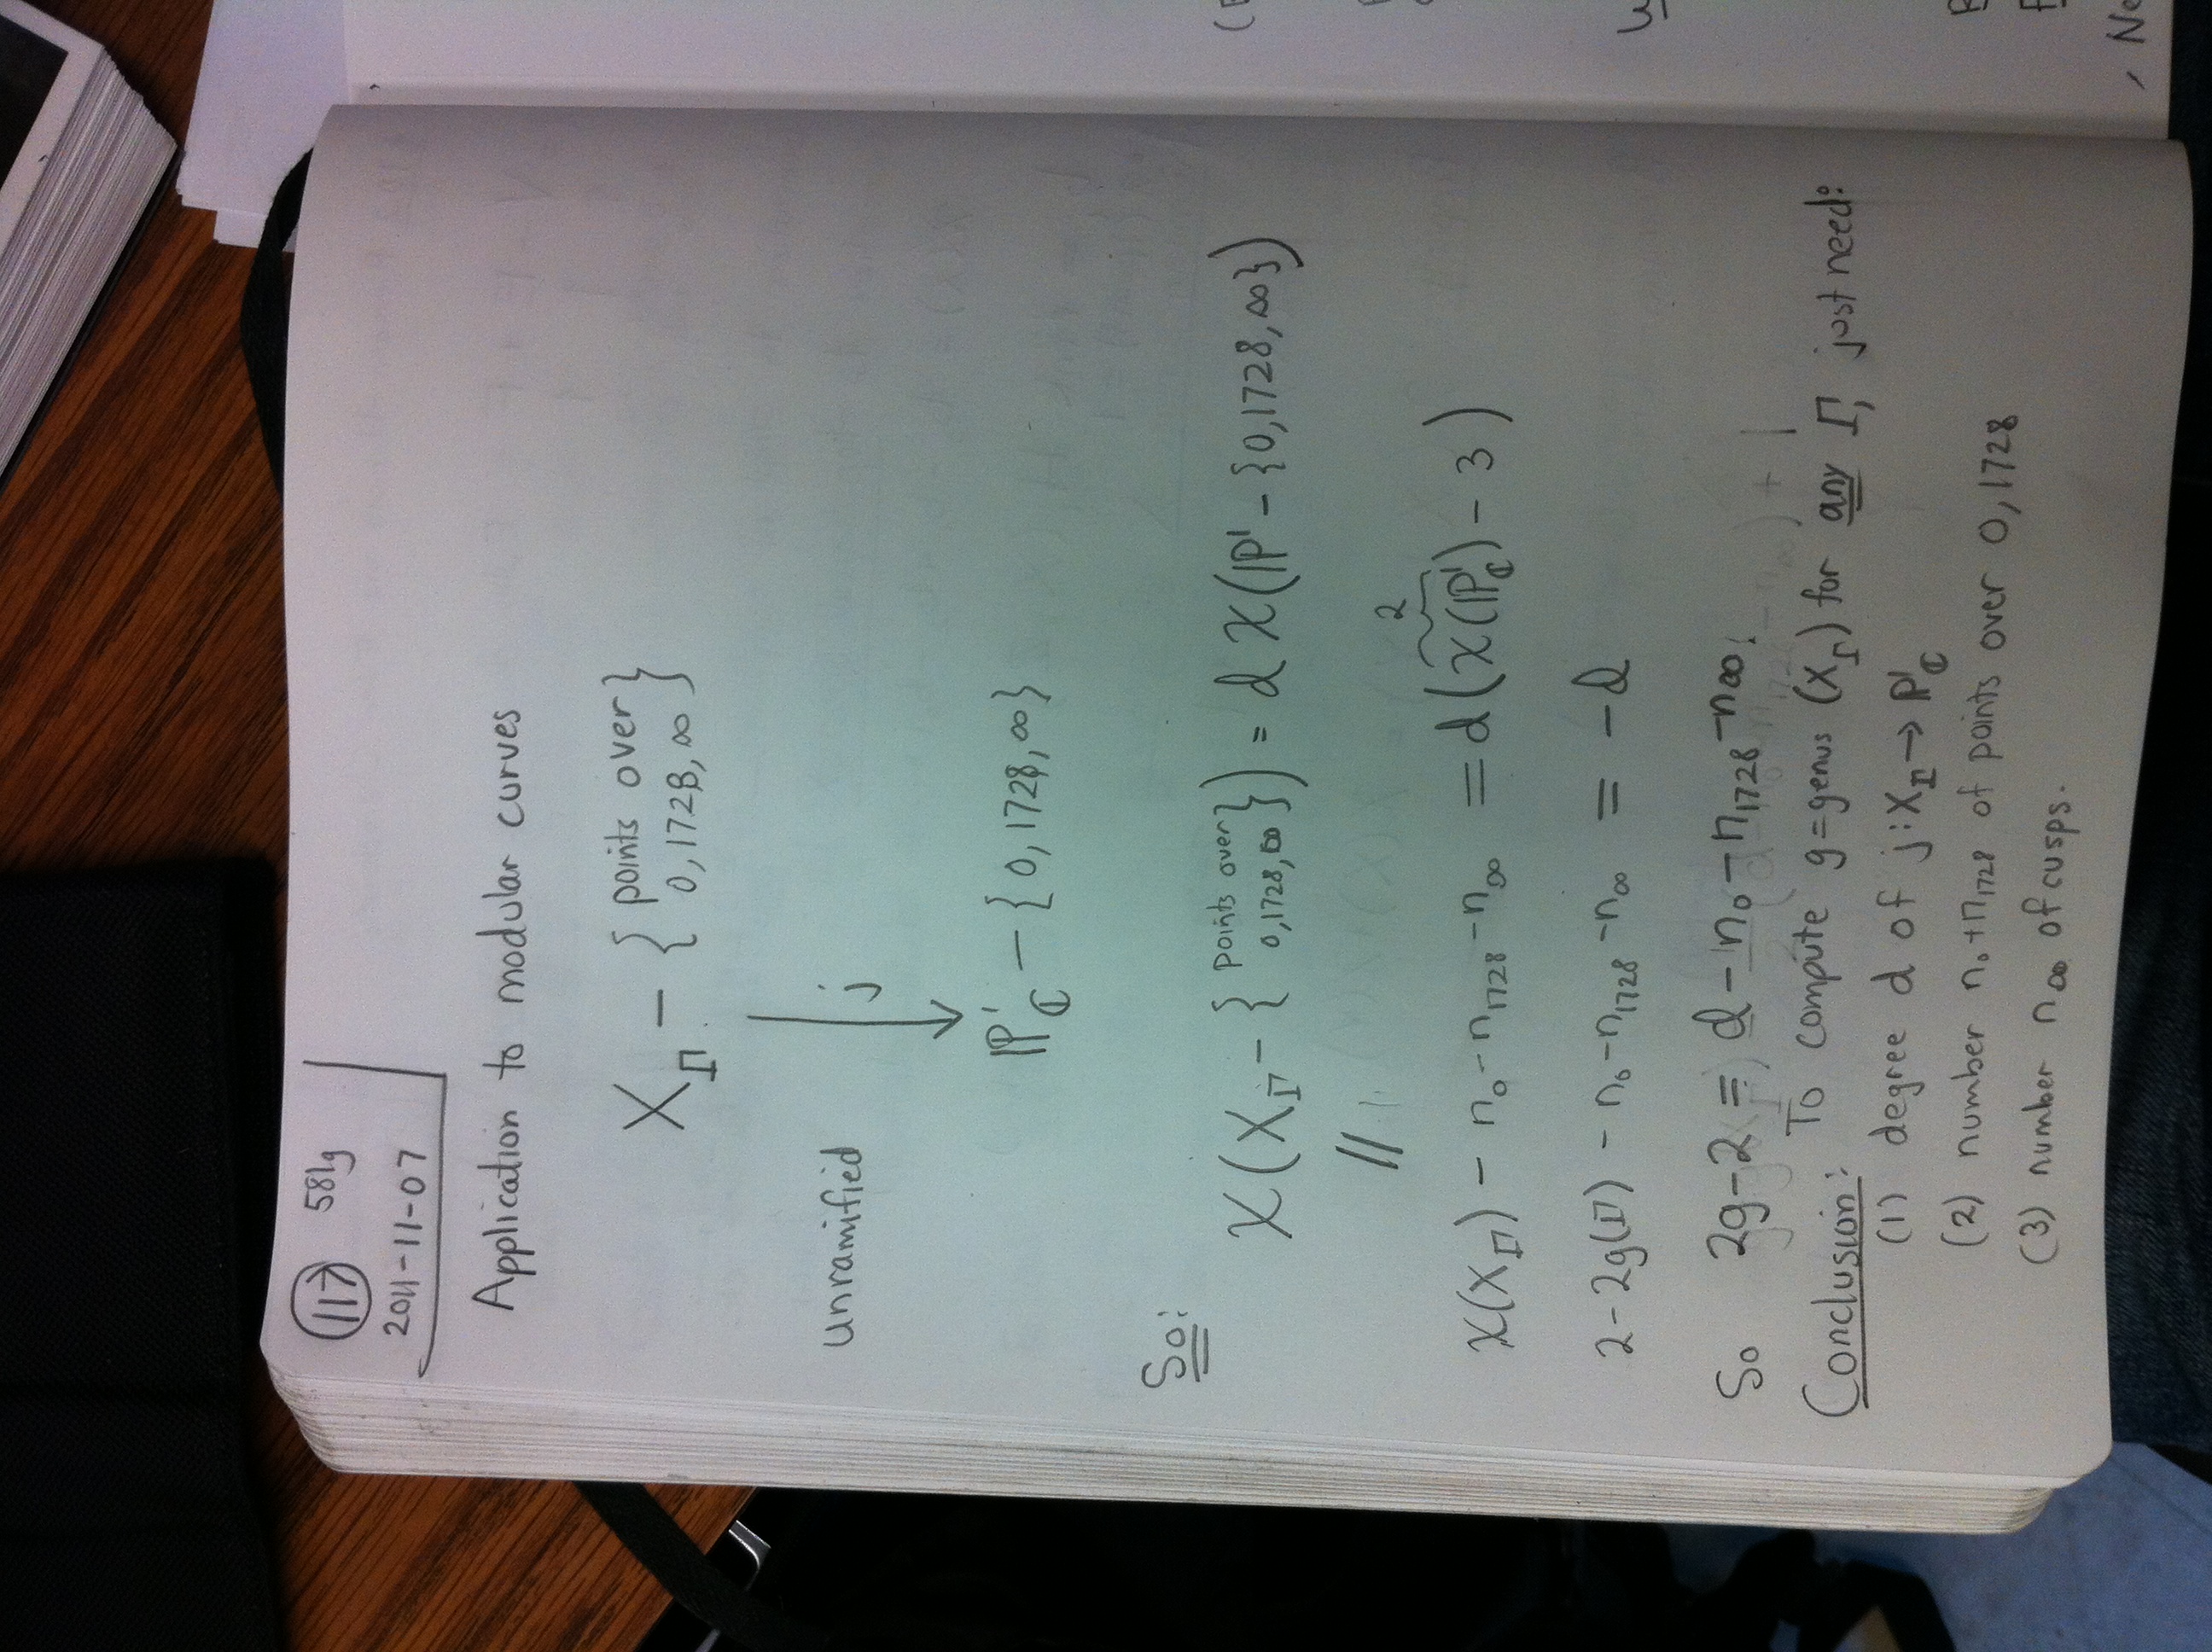 (117) 581g
2011-11-07
Application to modular curves
X_Γ − { points over
0, 1728, ∞ }
unramified ↓ j
ℙ¹_ℂ − {0, 1728, ∞}
So:
χ(X_Γ − { points over
0, 1728, ∞ }) = d χ(ℙ¹ − {0, 1728, ∞})
//
2
χ(X_Γ) − n₀ − n₁₇₂₈ − n_∞ = d(χ(ℙ¹_ℂ) − 3)
2 − 2g(Γ) − n₀ − n₁₇₂₈ − n_∞ = −d
So 2g−2 = d − n₀ − n₁₇₂₈ − n_∞.
Conclusion: To compute g = genus(X_Γ) for any Γ, just need:
(1) degree d of j: X_Γ → ℙ¹_ℂ
(2) number n₀ + n₁₇₂₈ of points over 0, 1728
(3) number n_∞ of cusps.
, Ne